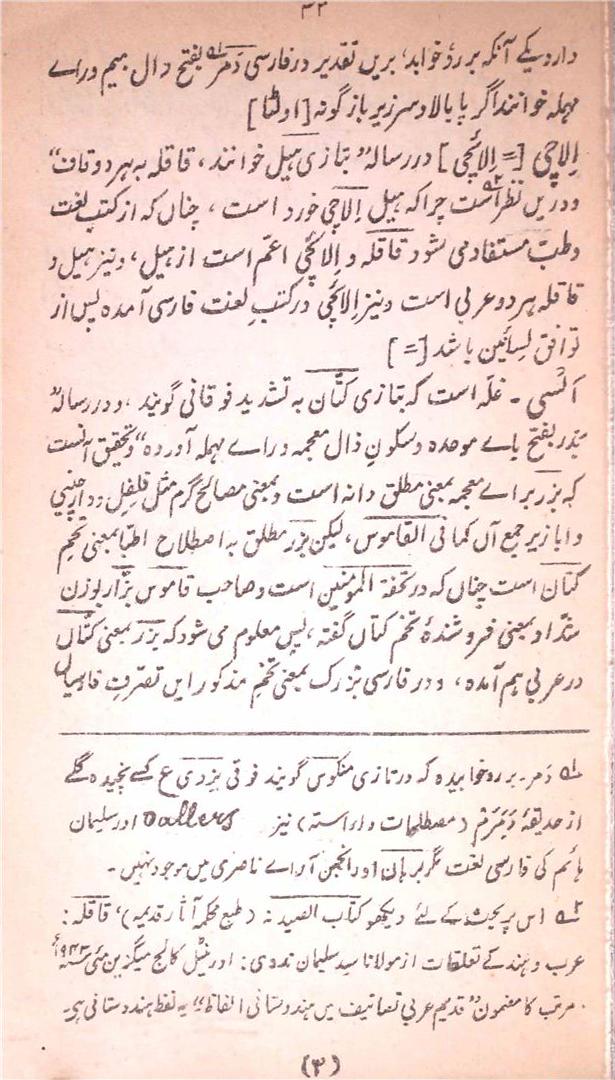 ۴۲
دارد یکے آنکہ بر رُو خوابد، بریں تقدیر در فارسی دَمَر۱ بفتح دال ، میم و راے
مہملہ خوانند اگر پا بالا و سر زیر باز گونہ [اولٹا]
اِلاچی [= اِلائچی] در رسالہ "بتازی ہیل خوانند، قاقلہ بہ ہر دو قاف"
و دریں نظر۲ است چراکہ ہیل اِلاچی خورد است ، چناں کہ از کتب لغت
و طب مستفاد می شود قاقلہ و اِلائچی اعم است از ہیل، و نیز ہیل و
قاقلہ ہر دو عربی است و نیز اِلائچی در کتبِ لغت فارسی آمدہ پس از
توافق لسانین باشد [=]
اَلسی ۔ غلہ است کہ بتازی کتّان بہ تشدید فوقانی گویند ، و در رسالہ "
بَذر بفتح باے موحدہ و سکون ذال معجمہ و راے مہملہ آوردہ" و تحقیق آنست
کہ بزر براے معجمہ بمعنی مطلق دانہ است و بمعنی مصالح گرم مثل فلفل و دارچینی
و ابازیر جمع آں کما فی القاموس، لیکن بزر مطلق بہ اصطلاح اطبّا بمعنی تخم
کتان است چناں کہ در تحفۃ المومنین است و صاحب قاموس بزّار بوزن
شدّاد بمعنی فروشندۂ تخم کتاں گفتہ ، پس معلوم می شود کہ بزر بمعنی کتّاں
در عربی ہم آمدہ ، و در فارسی بزرک بمعنی تخم مذکور ایں تصرّفِ فارسیاں
۱ دَمَر۔ بر رو خوابیدہ کہ در تازی منکوس گویند فوقی یزدی ع کسے نچیدہ گلے
از حدیقۂ دَمَرَم (مصطلحات وارستہ) نیز Vullers اور سلیمان
ہائم کی فارسی لغت مگر برہان اور انجمن آراے ناصری میں موجود نہیں ۔
۲ اس پر بحث کے لئے دیکھو کتاب الصیدنہ (طبع محکمہ آثار قدیمہ)، قاقلہ :
عرب و ہند کے تعلقات از مولانا سید سلیمان ندوی : اورینٹل کالج میگزین مئی سنہ ۱۹۴۳ء
مرتب کا مضمون "قدیم عربی تصانیف میں ہندوستانی الفاظ" یہ لفظ ہندوستانی ہی۔
(۳)